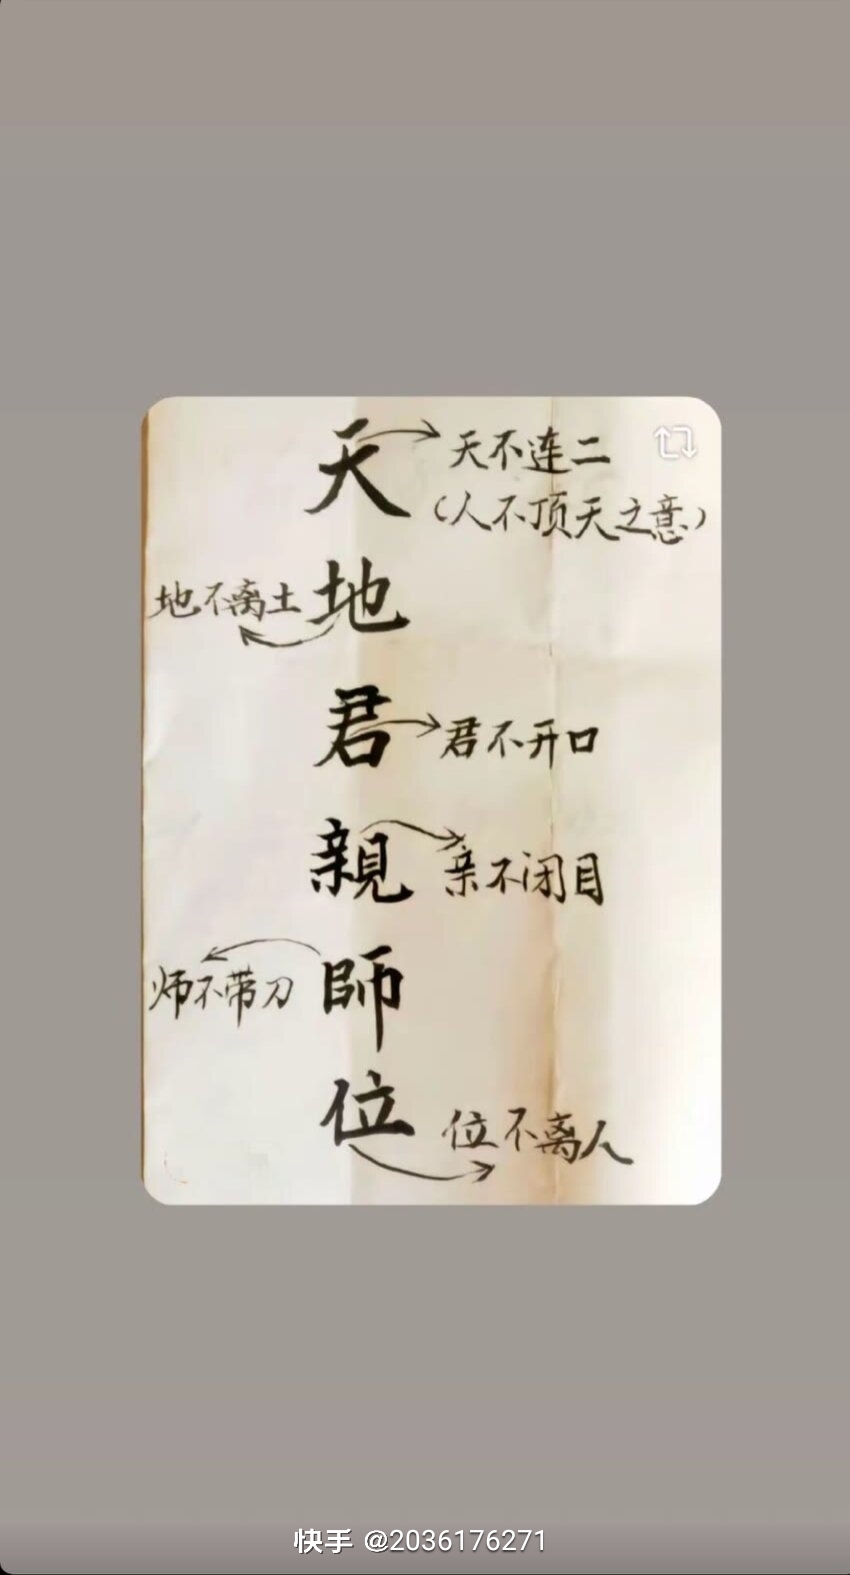 天
天不连二
（人不顶天之意）
地
地不离土
君
君不开口
親
亲不闭目
師
师不带刀
位
位不离人
快手 @2036176271